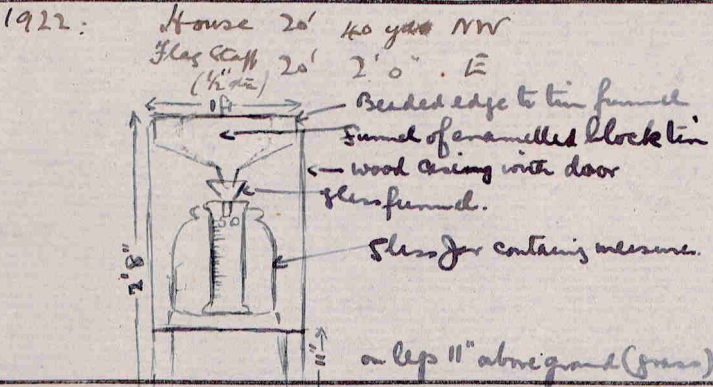 1922: House 20' 40 yds NW
Flag Staff 20' 2' 0" E
(½" dia)
1 ft
Beaded edge to tin funnel
Funnel of enamelled block tin
wood casing with door
glass funnel.
2' 8"
Glass Jar containing measure.
11"
on legs 11" above ground (grass)